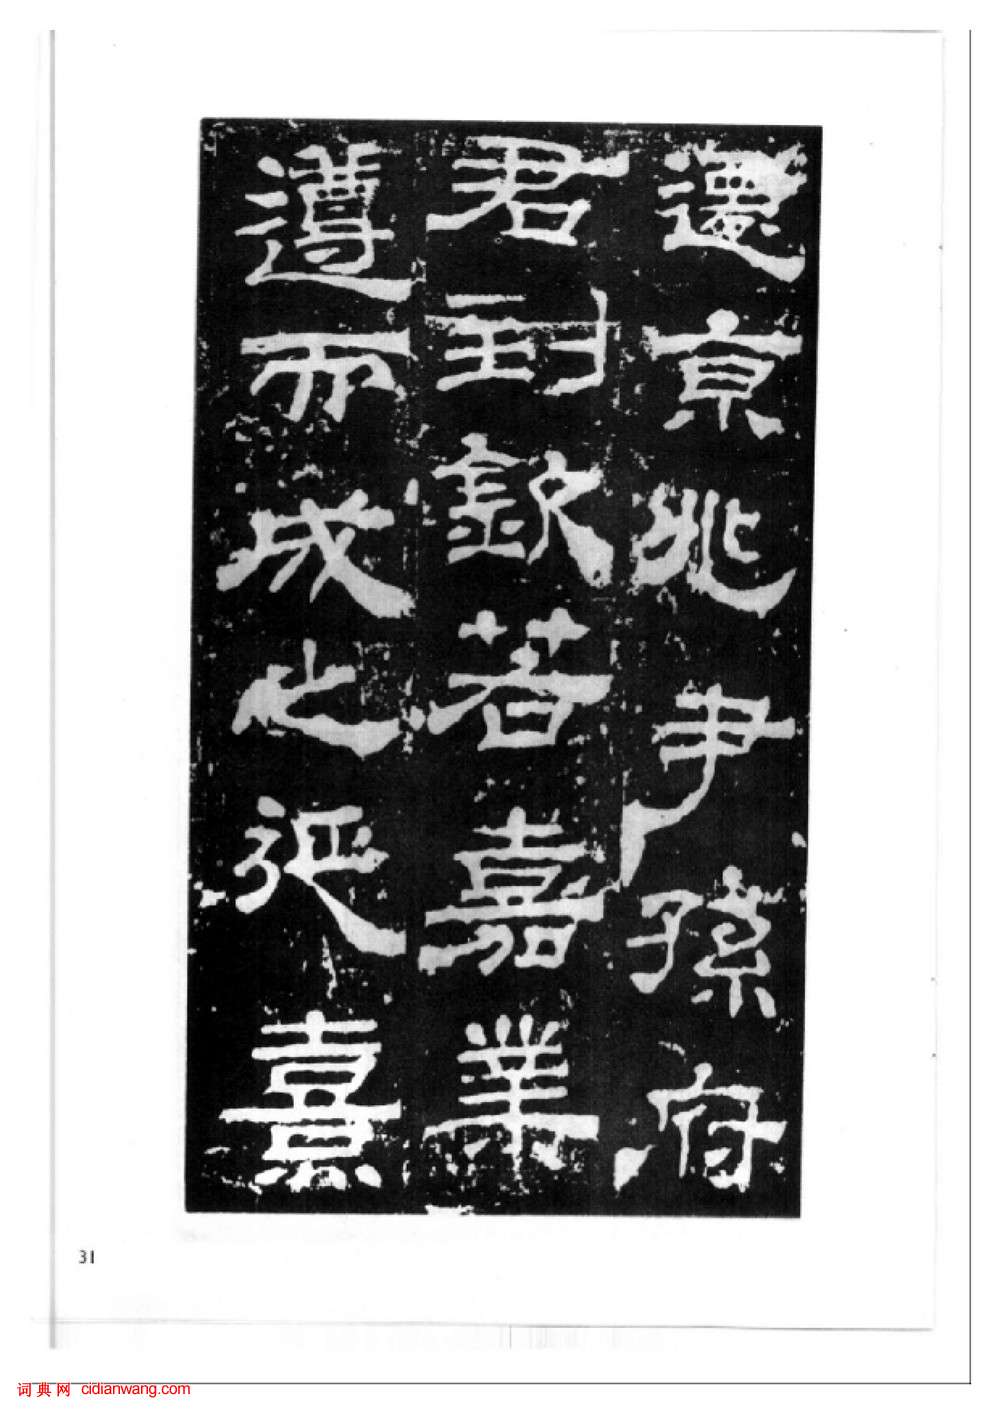 遷京兆尹孫府
君到欽若嘉業
遵而成之延熹
31
词典网 cidianwang.com